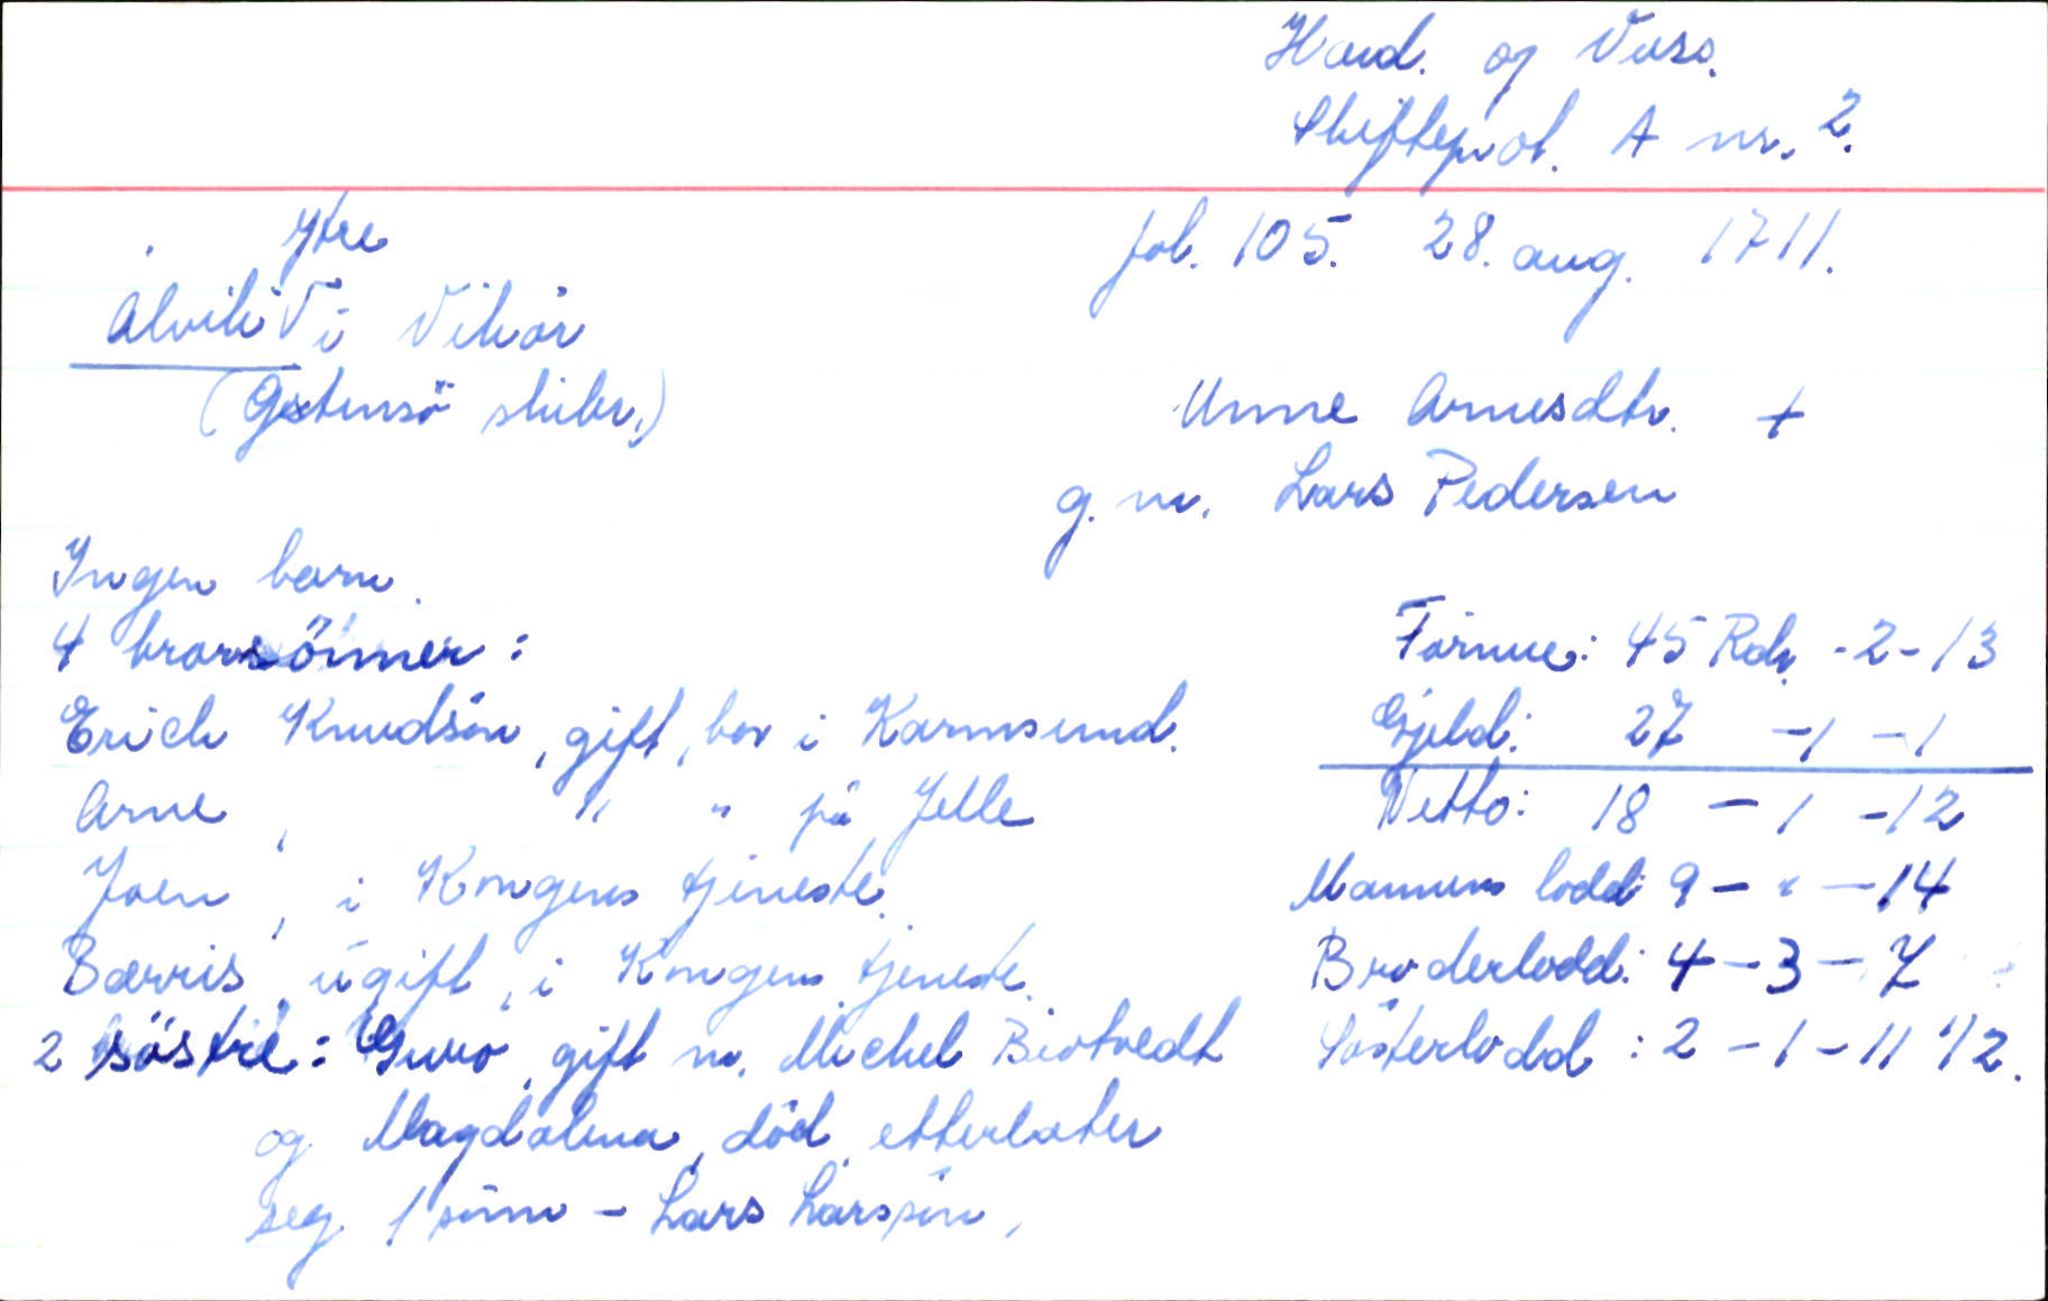 Hard. og Voss.
Skifteprot. A nr. 2.
fol. 105. 28. aug. 1711.
Ytre
Alvik i Vikör
(Östensö skibr.)
Unne Arnesdtr. +
g. m. Lars Pedersen
Ingen barn.
4 brorsönner:
Erich Knudsön, gift, bor i Karmsund.
Arne, " " på Jelle
Joen, i Kongens tjeneste.
Bærris, ugift, i Kongens tjeneste.
2 söstre: Guro, gift m. Michel Biotvedt
og Magdalena, död, etterlater
seg 1 sönn - Lars Larssön,
Formue: 45 Rdr. - 2 - 13
Gjeld: 27 - 1 - 1
Netto: 18 - 1 - 12
Mannens lodd: 9 - " - 14
Broderlodd: 4 - 3 - 7
Sösterlodd: 2 - 1 - 11 1/2.